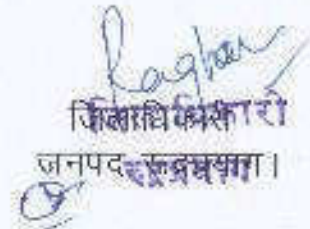 Raghav
जिलाधिकारी
जनपद रूद्रप्रयाग।